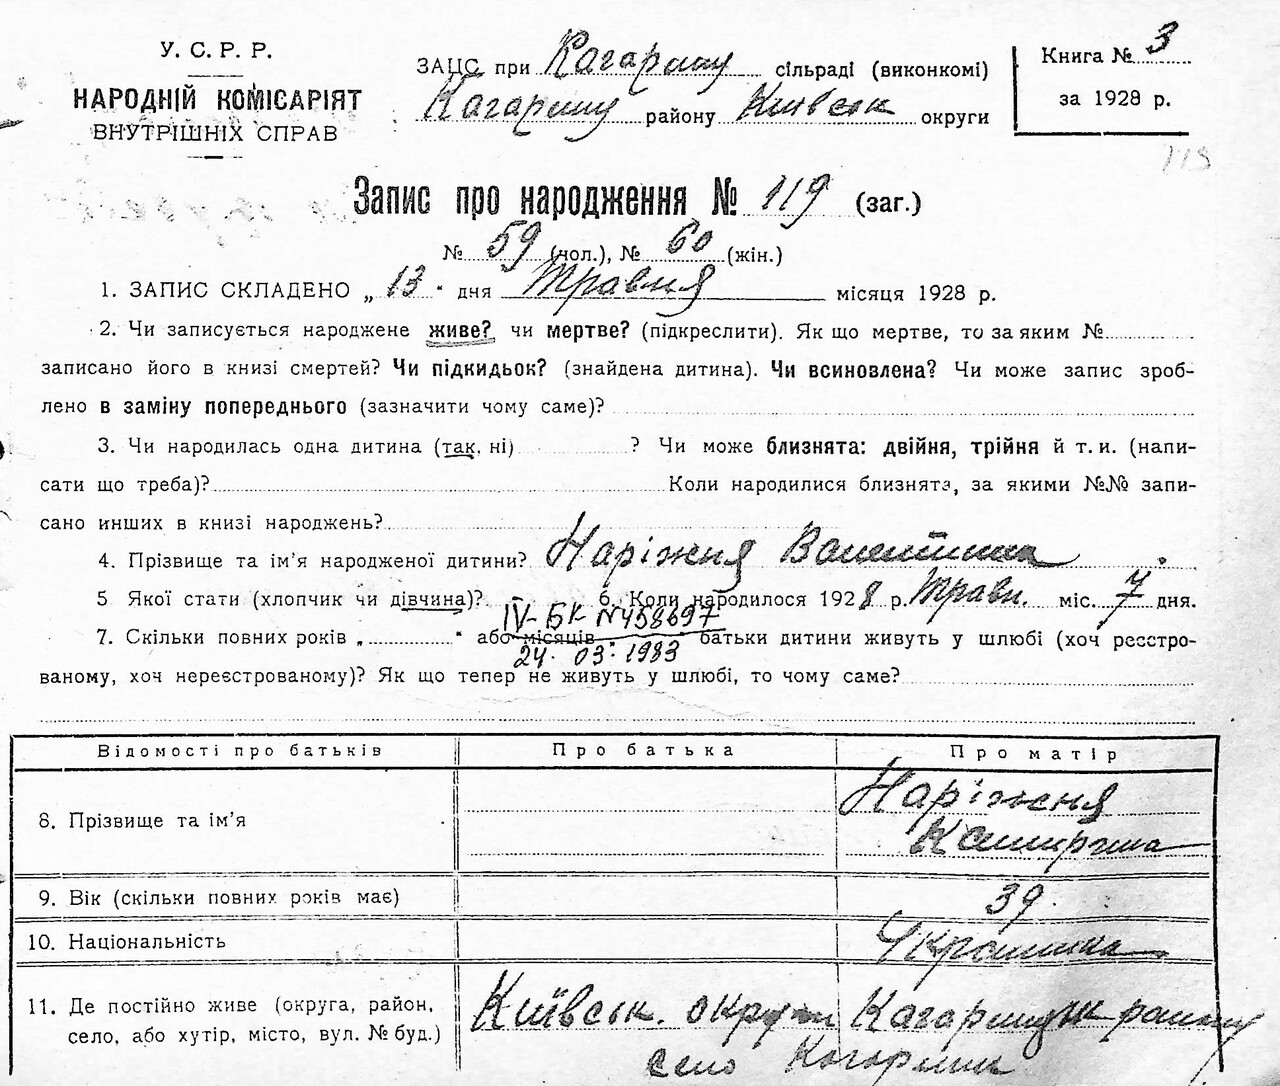 У. С. Р. Р.
НАРОДНІЙ КОМІСАРІЯТ
ВНУТРІШНІХ СПРАВ
ЗАЦС при Кагарлику сільраді (виконкомі)
Кагарлику району Київськ округи
Книга № 3
за 1928 р.
119
Запис про народження № 119 (заг.)
№ 59 (чол.), № 60 (жін.)
1. ЗАПИС СКЛАДЕНО „ 13 " дня Травня місяця 1928 р.
2. Чи записується народжене живе? чи мертве? (підкреслити). Як що мертве, то за яким №
записано його в книзі смертей? Чи підкидьок? (знайдена дитина). Чи всиновлена? Чи може запис зроб-
лено в заміну попереднього (зазначити чому саме)?
3. Чи народилась одна дитина (так, ні) ? Чи може близнята: двійня, трійня й т. и. (напи-
сати що треба)? Коли народилися близнята, за якими №№ запи-
сано инших в книзі народжень?
4. Прізвище та ім'я народженої дитини? Наріжня Валентина
5 Якої стати (хлопчик чи дівчина)? 6. Коли народилося 1928 р. Травн. міс. 7 дня.
IV-БК №458697
7. Скільки повних років „ " або місяців батьки дитини живуть у шлюбі (хоч реєстро-
24. 03. 1983
ваному, хоч нереєстрованому)? Як що тепер не живуть у шлюбі, то чому саме?
Відомості про батьків Про батька Про матір
8. Прізвище та ім'я Наріжня
9. Вік (скільки повних років має) 39
10. Національність Українка
11. Де постійно живе (округа, район, Київськ. округи Кагарлицьк району
село, або хутір, місто, вул. № буд.) село Кагарлик